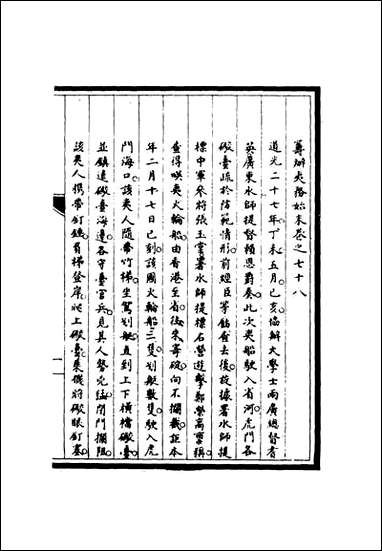 籌辦夷務始末卷之七十八
道光二十七年丁未五月己亥協辦大學士兩廣總督耆
英廣東水師提督賴恩爵奏此次夷船駛入省河虎門各
礮臺疏於防範情形前經臣等飭查去後茲據署水師提
標中軍參將張玉堂署水師提標右營遊擊鄭榮高稟稱
查得𠸄夷火輪船由香港至省後來寄碇向不攔截詎本
年二月十七日巳刻該國火輪船三隻划艇數隻駛入虎
門海口該夷人隨帶竹梯坐駕划艇直到上下橫檔礮臺
並鎮遠礮臺海邊各守臺官兵見其人勢兇猛閉門攔阻
該夷人攜帶釘鎚肩梯登岸爬上礮臺乘機將礮眼釘塞